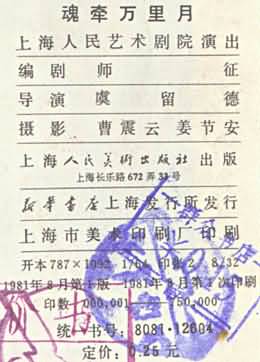 魂牵万里月
上海人民艺术剧院演出
编剧 师征
导演 虞留德
摄影 曹震云 姜节安
上海人民美术出版社出版
上海长乐路672弄33号
新华书店上海发行所发行
上海市美术印刷厂印刷
开本787×1092 1/64 印张2 8/32
1981年8月第1版 1981年8月第1次印刷
印数 000,001—50,000
统一书号:8081·12604
定价:0.25元